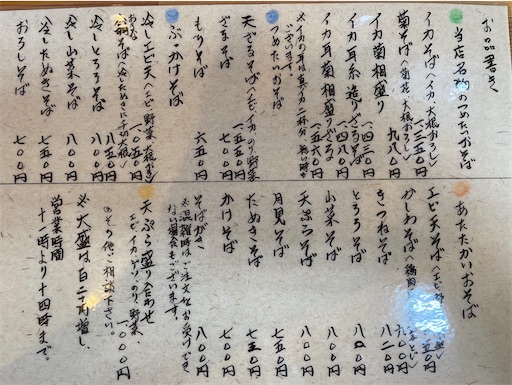 お品書き
当店名物のつめたいおそば
イカそば(イカ、大根おろし)
菊そば(菊花、大根おろし) 九八〇円
イカ菊相盛り 一、四三〇円
イカ耳糸造りざるそば 一、四八〇円
イカ耳菊相盛りざるそば 一、五六〇円
※イカの耳は真イカ二杯分
ございます。
つめたいおそば
天ざるそば(エビ、イカ、のり、野菜) 一、五五〇円
ざるそば 七〇〇円
もりそば 六五〇円
ぶっかけそば
冷しエビ天(エビ、野菜、大根おろし) 一、〇五〇円
(冷したぬきに千切大根) 八五〇円
冷しとろろそば 八〇〇円
冷し山菜そば 八〇〇円
冷したぬきそば 七五〇円
おろしそば 七〇〇円
あたたかいおそば
エビ天そば
かしわそば(鶏肉) 九〇〇円
きつねそば 八二〇円
とろろそば 八〇〇円
山菜そば 八〇〇円
天ぷらそば 八〇〇円
月見そば 七五〇円
たぬきそば 七五〇円
かけそば 七〇〇円
そばがき 八〇〇円
※混雑時はご注文をお受けでき
ない場合もございます。
天ぷら盛り合わせ 一、〇〇〇円
エビ、イカ、ゲソ、のり、野菜、
その他ご相談下さい。
※大盛は百二十円増し、
営業時間
十一時より十四時まで。